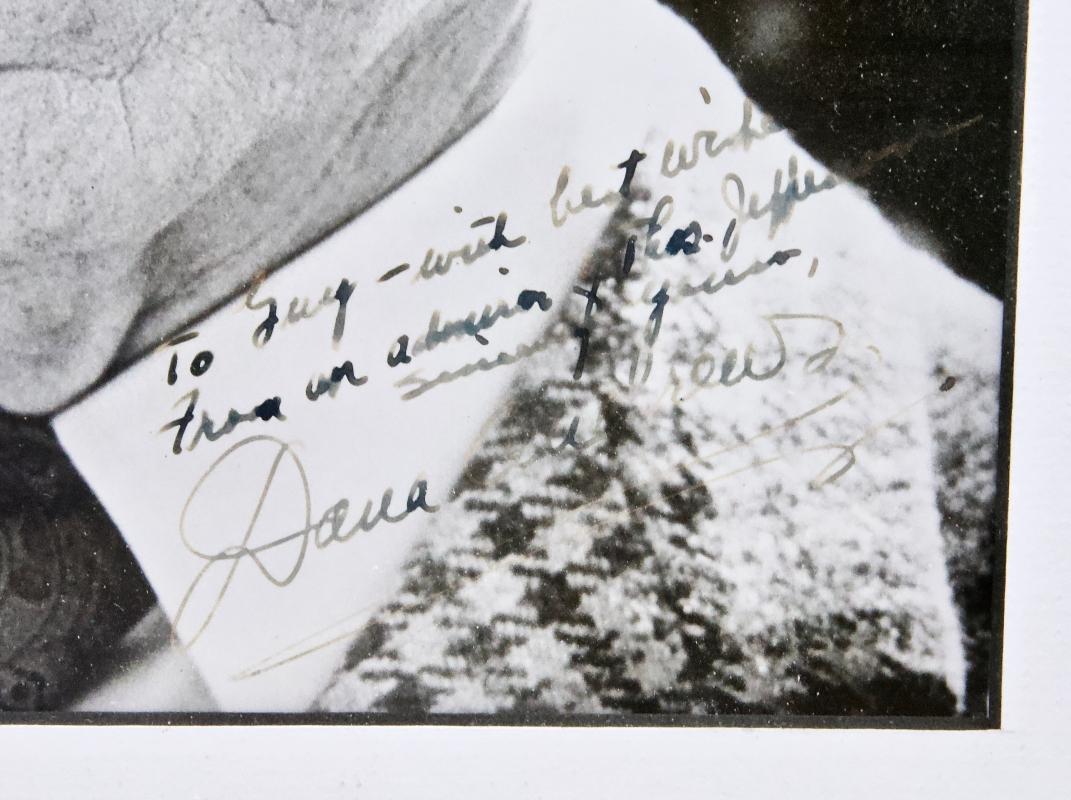 To Guy - with best wishe
From an admirer of Thos. Jeffer
Sincerely yours,
Dana Andrews